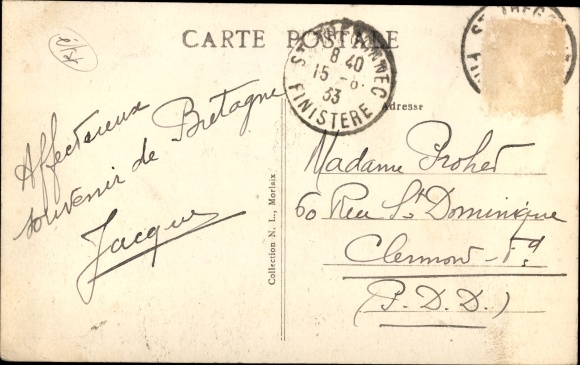 CARTE POSTALE
ST THEGONNEC
8 40
15 - 8
33
FINISTERE
Adresse
Affectueux
souvenir de Bretagne
Jacques
Collection N. L., Morlaix
Madame
60 Rue St Dominique
Clermont-Fd
(P.D.D.)